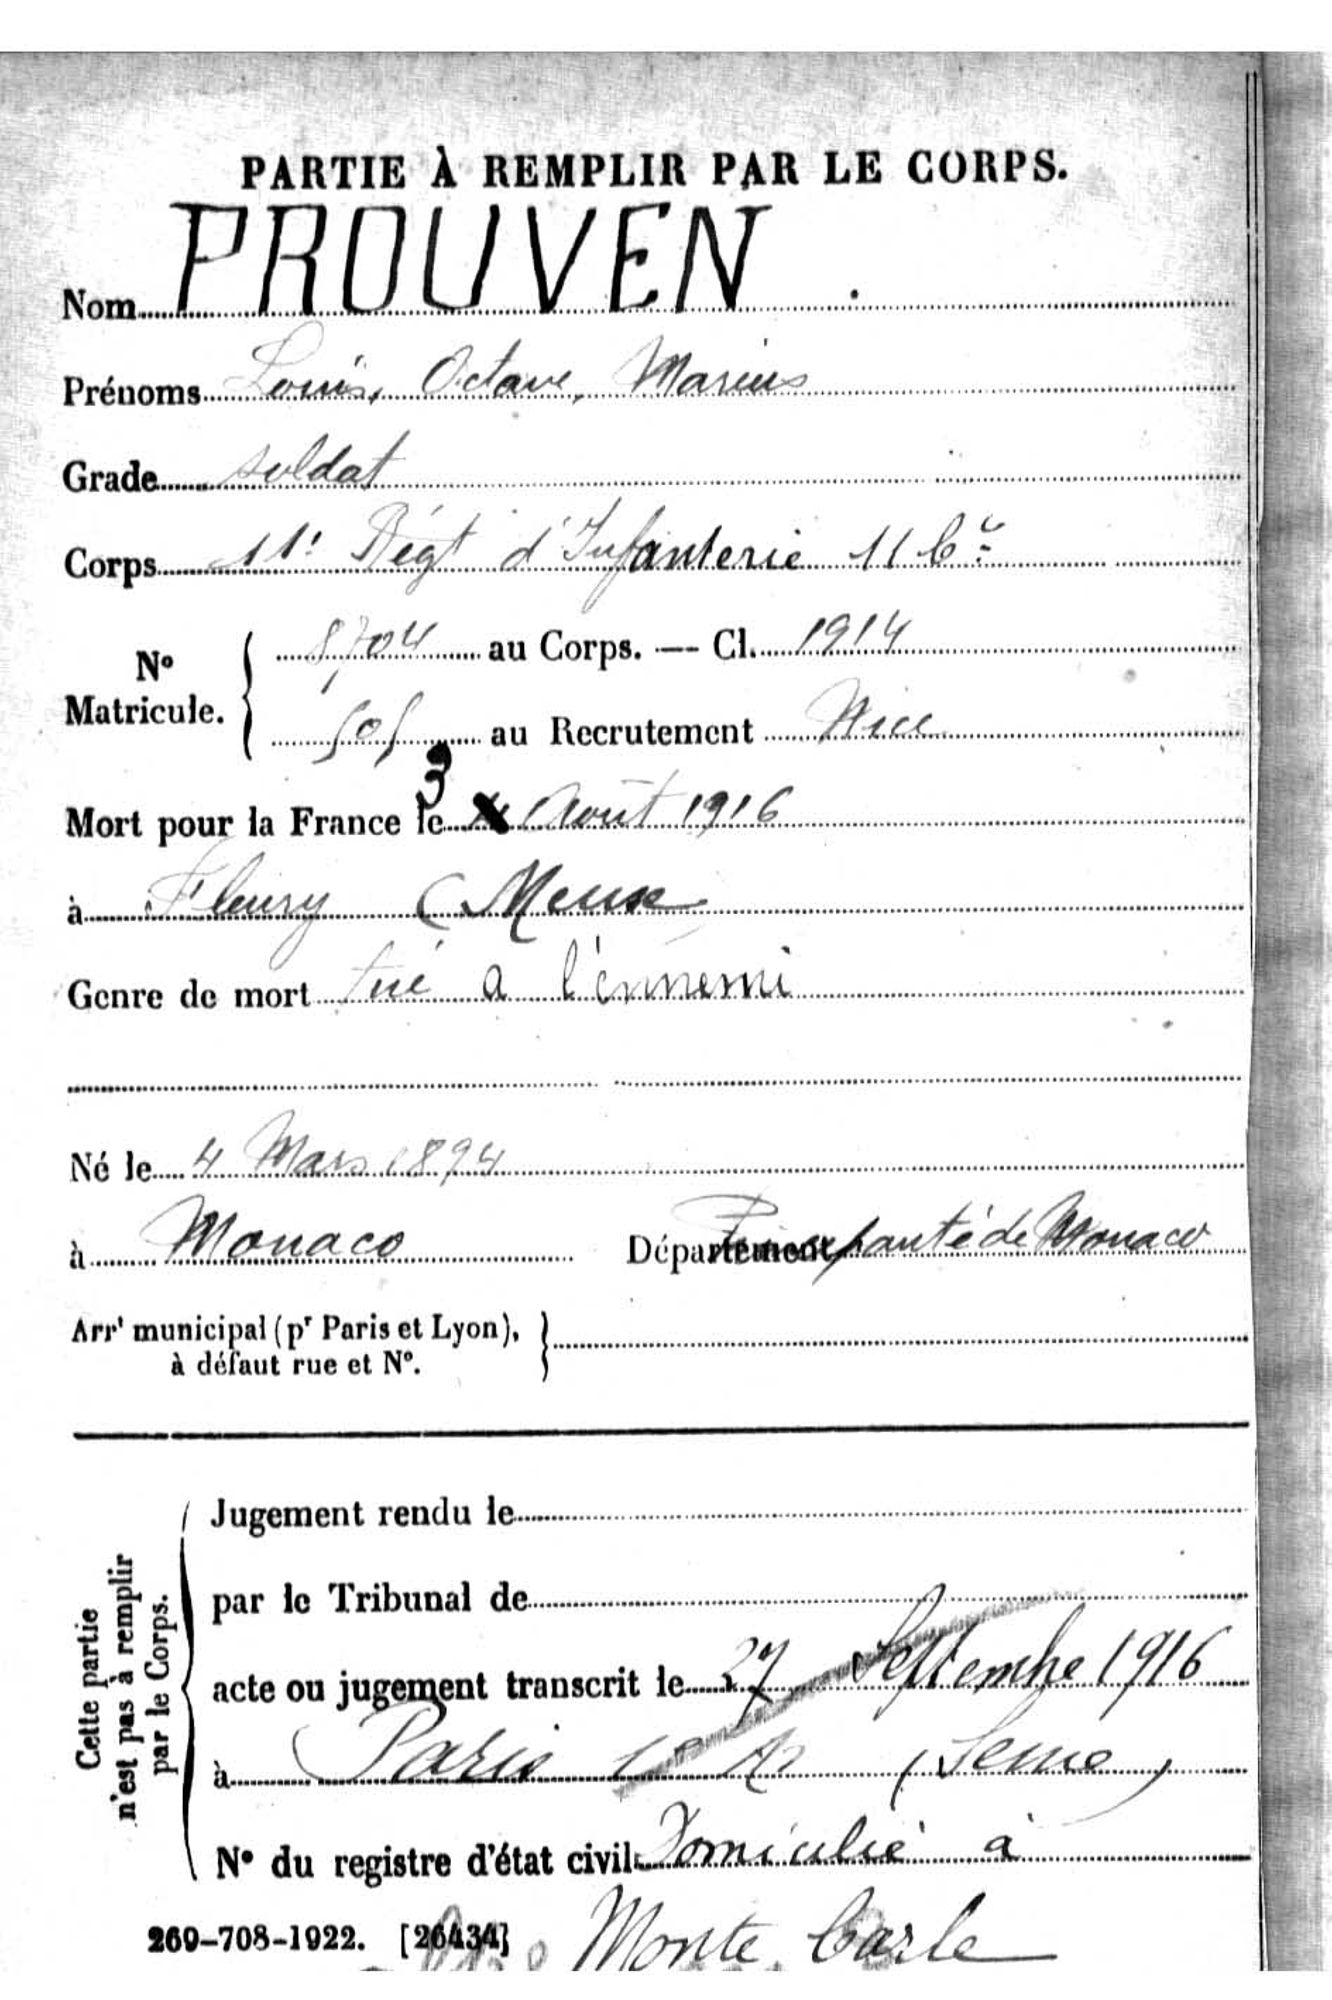 PARTIE À REMPLIR PAR LE CORPS.
Nom PROUVEN
Prénoms Louis, Octave, Marius
Grade soldat
Corps 11e Régt d'Infanterie 11 Cie
No Matricule. { 8704 au Corps. — Cl. 1914
505 au Recrutement Nice
Mort pour la France le 3 Août 1916
à Fleury (Meuse
Genre de mort tué a l'ennemi
Né le 4 Mars 1894
à Monaco Département Principauté de Monaco
Arrt municipal (pr Paris et Lyon), }
à défaut rue et No.
Cette partie
n'est pas à remplir
par le Corps.
Jugement rendu le
par le Tribunal de
acte ou jugement transcrit le 27 Septembre 1916
à Paris (Seine)
No du registre d'état civil Domicilié à
Monte Carlo
269-708-1922. [26434]